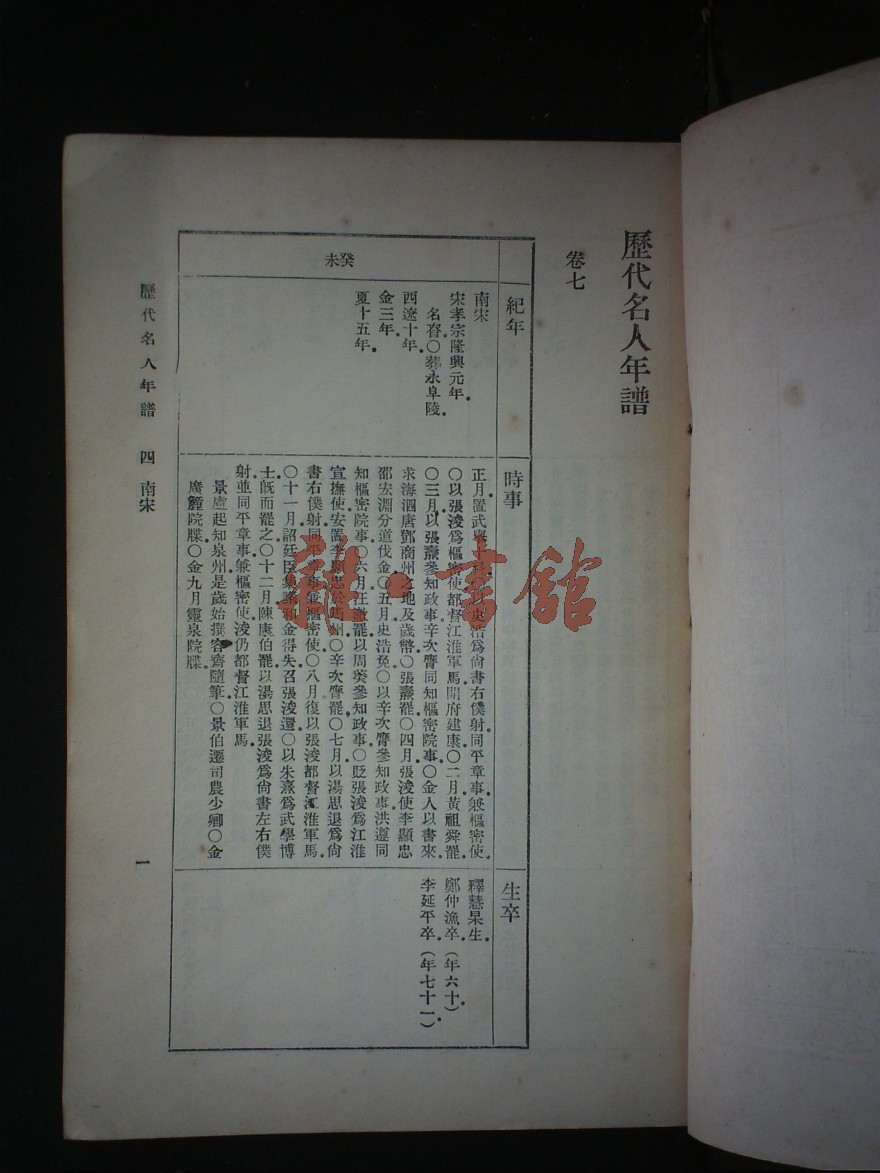 歷代名人年譜
卷七
紀年
時事
生卒
癸未
南宋
宋孝宗隆興元年。
名眘○葬永阜陵。
西遼十年。
金三年。
夏十五年。
正月置武舉十科○以史浩爲尙書右僕射同平章事兼樞密使
○以張浚爲樞密使都督江淮軍馬開府建康○二月黃祖舜罷。
○三月以張燾參知政事辛次膺同知樞密院事○金人以書來
求海泗唐鄧商州之地及歲幣○張燾罷○四月張浚使李顯忠
邵宏淵分道伐金○五月史浩免○以辛次膺參知政事洪遵同
知樞密院事○六月汪澈罷以周葵參知政事○貶張浚爲江淮
宣撫使安置李顯忠於筠州○辛次膺罷○七月以湯思退爲尙
書右僕射同平章事兼樞密使○八月復以張浚都督江淮軍馬。
○十一月詔廷臣集議和金得失召張浚還○以朱熹爲武學博
士旣而罷之○十二月陳康伯罷以湯思退張浚爲尙書左右僕
射並同平章事兼樞密使浚仍都督江淮軍馬。
景盧起知泉州是歲始撰容齋隨筆○景伯遷司農少卿○金
廣麗院牒○金九月靈泉院牒。
釋慧杲生。
鄭仲漁卒。(年六十)
李延平卒。(年七十一)
歷代名人年譜 四 南宋
一
龍書館